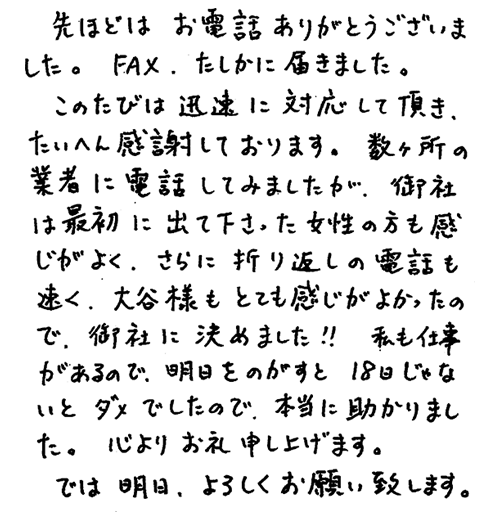 先ほどは お電話 ありがとうございま
した。 FAX、たしかに 届きました。
このたびは 迅速に 対応して 頂き、
たいへん 感謝しております。 数ヶ所の
業者に 電話してみましたが、御社
は最初に出て下さった女性の方も感
じがよく、さらに 折り返しの電話も
速く、大谷様も とても感じがよかったの
で、御社に決めました!! 私も仕事
があるので、明日をのがすと 18日じゃな
いと ダメでしたので、本当に助かりまし
た。 心より お礼 申し上げます。
では 明日、よろしくお願い致します。